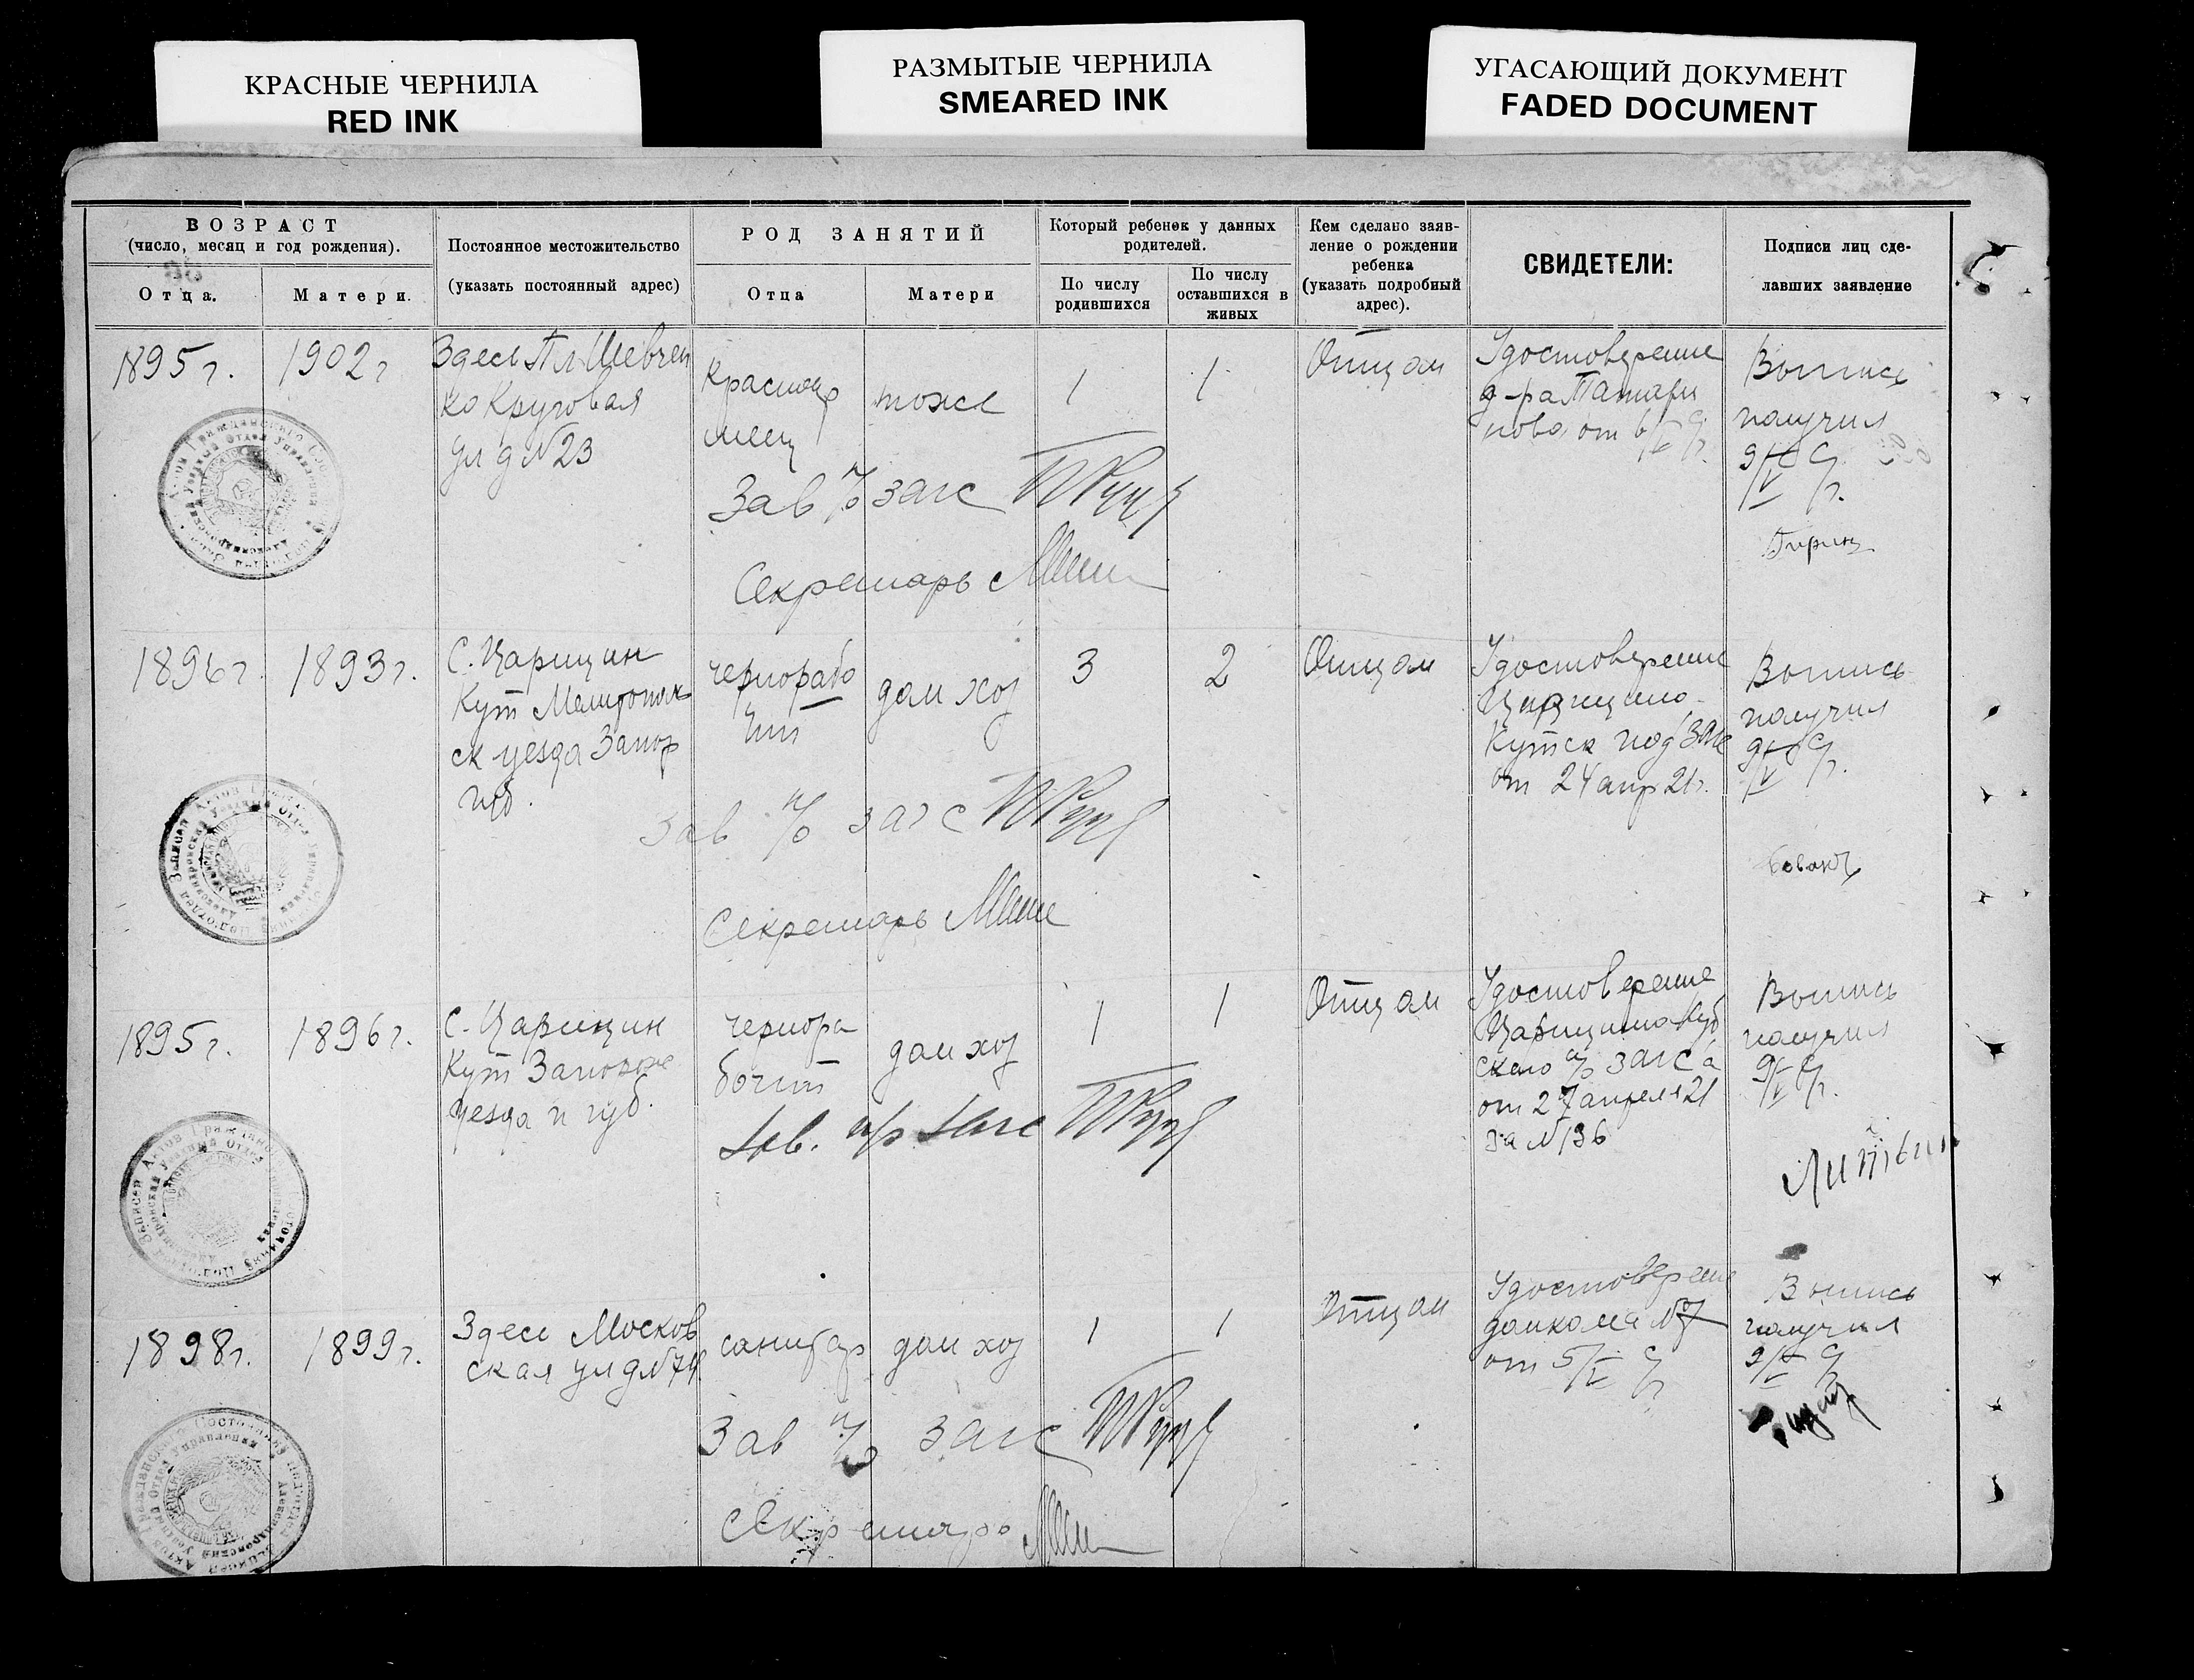 КРАСНЫЕ ЧЕРНИЛА
RED INK
РАЗМЫТЫЕ ЧЕРНИЛА
SMEARED INK
УГАСАЮЩИЙ ДОКУМЕНТ
FADED DOCUMENT
ВОЗРАСТ
(число, месяц и год рождения).
Отца.
Матери.
Постоянное местожительство
(указать постоянный адрес)
РОД ЗАНЯТИЙ
Отца
Матери
Который ребенок у данных
родителей.
По числу
родившихся
По числу
оставшихся в
живых
Кем сделано заяв-
ление о рождении
ребенка
(указать подробный
адрес).
СВИДЕТЕЛИ:
Подписи лиц сде-
лавших заявление
1895 г.
1902 г
Здесь Пл Шевчен
ко Круговая
ул д №23
тоже
1
1
Отцом
Удостоверение
д-ра
от 6/V
Выпись
получил
9/V
Зав п/о загс
Секретарь
1896 г
1893 г.
С. Царицын
Кут Мелитополь
ск уезда Запор
губ.
чернорабо
чий
дом хоз
3
2
Отцом
Удостоверение
Царицыно
Кутск под Заг
от 24 апр 21 г.
Выпись
получил
9/V
Зав п/о загс
Секретарь
1895 г.
1896 г.
С. Царицын
Кут Запорож
уезда и губ.
чернора
бочий
дом хоз
1
1
Отцом
Удостоверение
Царицыно Кут
ского п/о загса
от 27 апреля 21
за №136
Выпись
получил
9/V
Зав. п/о Загс
Литвин
1898 г.
1899 г.
Здесь Москов
ская ул д №74
санитар
дом хоз
1
1
Отцом
Удостоверение
домкома №7
от 5/V
Выпись
получил
9/V
Зав п/о загс
Секретарь